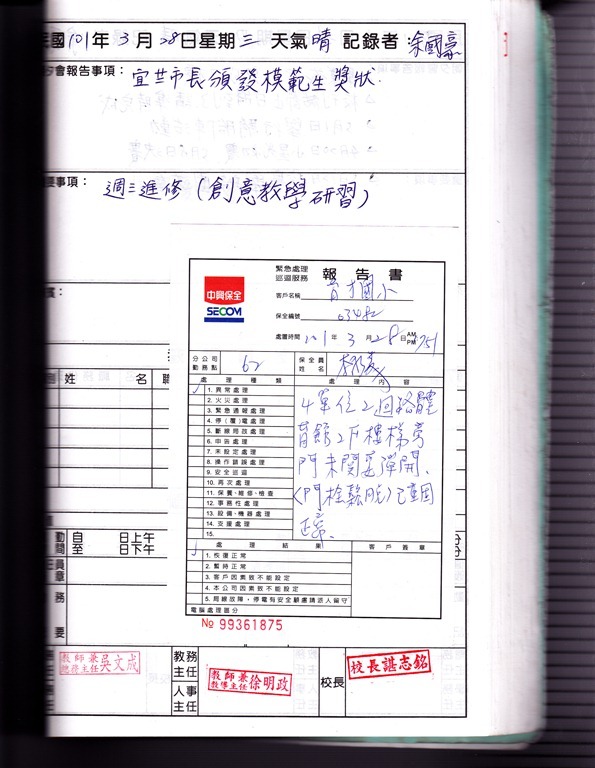 民國101年3月28日星期三 天氣晴 記錄者 涂國豪
夕會報告事項： 宜蘭市長頒發模範生獎狀.
要事項： 週三進修（創意教學研習）
中興保全
SECOM
緊急處理
巡迴服務 報告書
客戶名稱 育才國小
保全編號
處置時間 101年3月28日 AM PM 751
分公司
勤務點 62
保全員
姓名
處理種類 處理內容
1. 異常處理
2. 火災處理
3. 緊急通報處理
4. 停（覆）電處理
5. 斷線局故處理
6. 申告處理
7. 未設定處理
8. 操作錯誤處理
9. 安全巡迴
10. 再次處理
11. 保養、維修、檢查
12. 事務性處理
13. 設備、機器處理
14. 支援處理
15.
4單位2迴路體
育館2F樓梯旁
門未關妥彈開、
〈門栓鬆脫〉已重固
正常、
處理結果 客戶簽章
1. 恢復正常
2. 暫時正常
3. 客戶因素致不能設定
4. 本公司因素致不能設定
5. 局線故障、停電有安全顧慮請派人留守
電腦處理區分
№ 99361875
別 姓名 職
自 日上午
至 日下午
動
間
員
章
務
要
教師兼
總務主任 吳文成
教務
主任
人事
主任
教師兼
教學主任 徐明政
校長
校長諶志銘